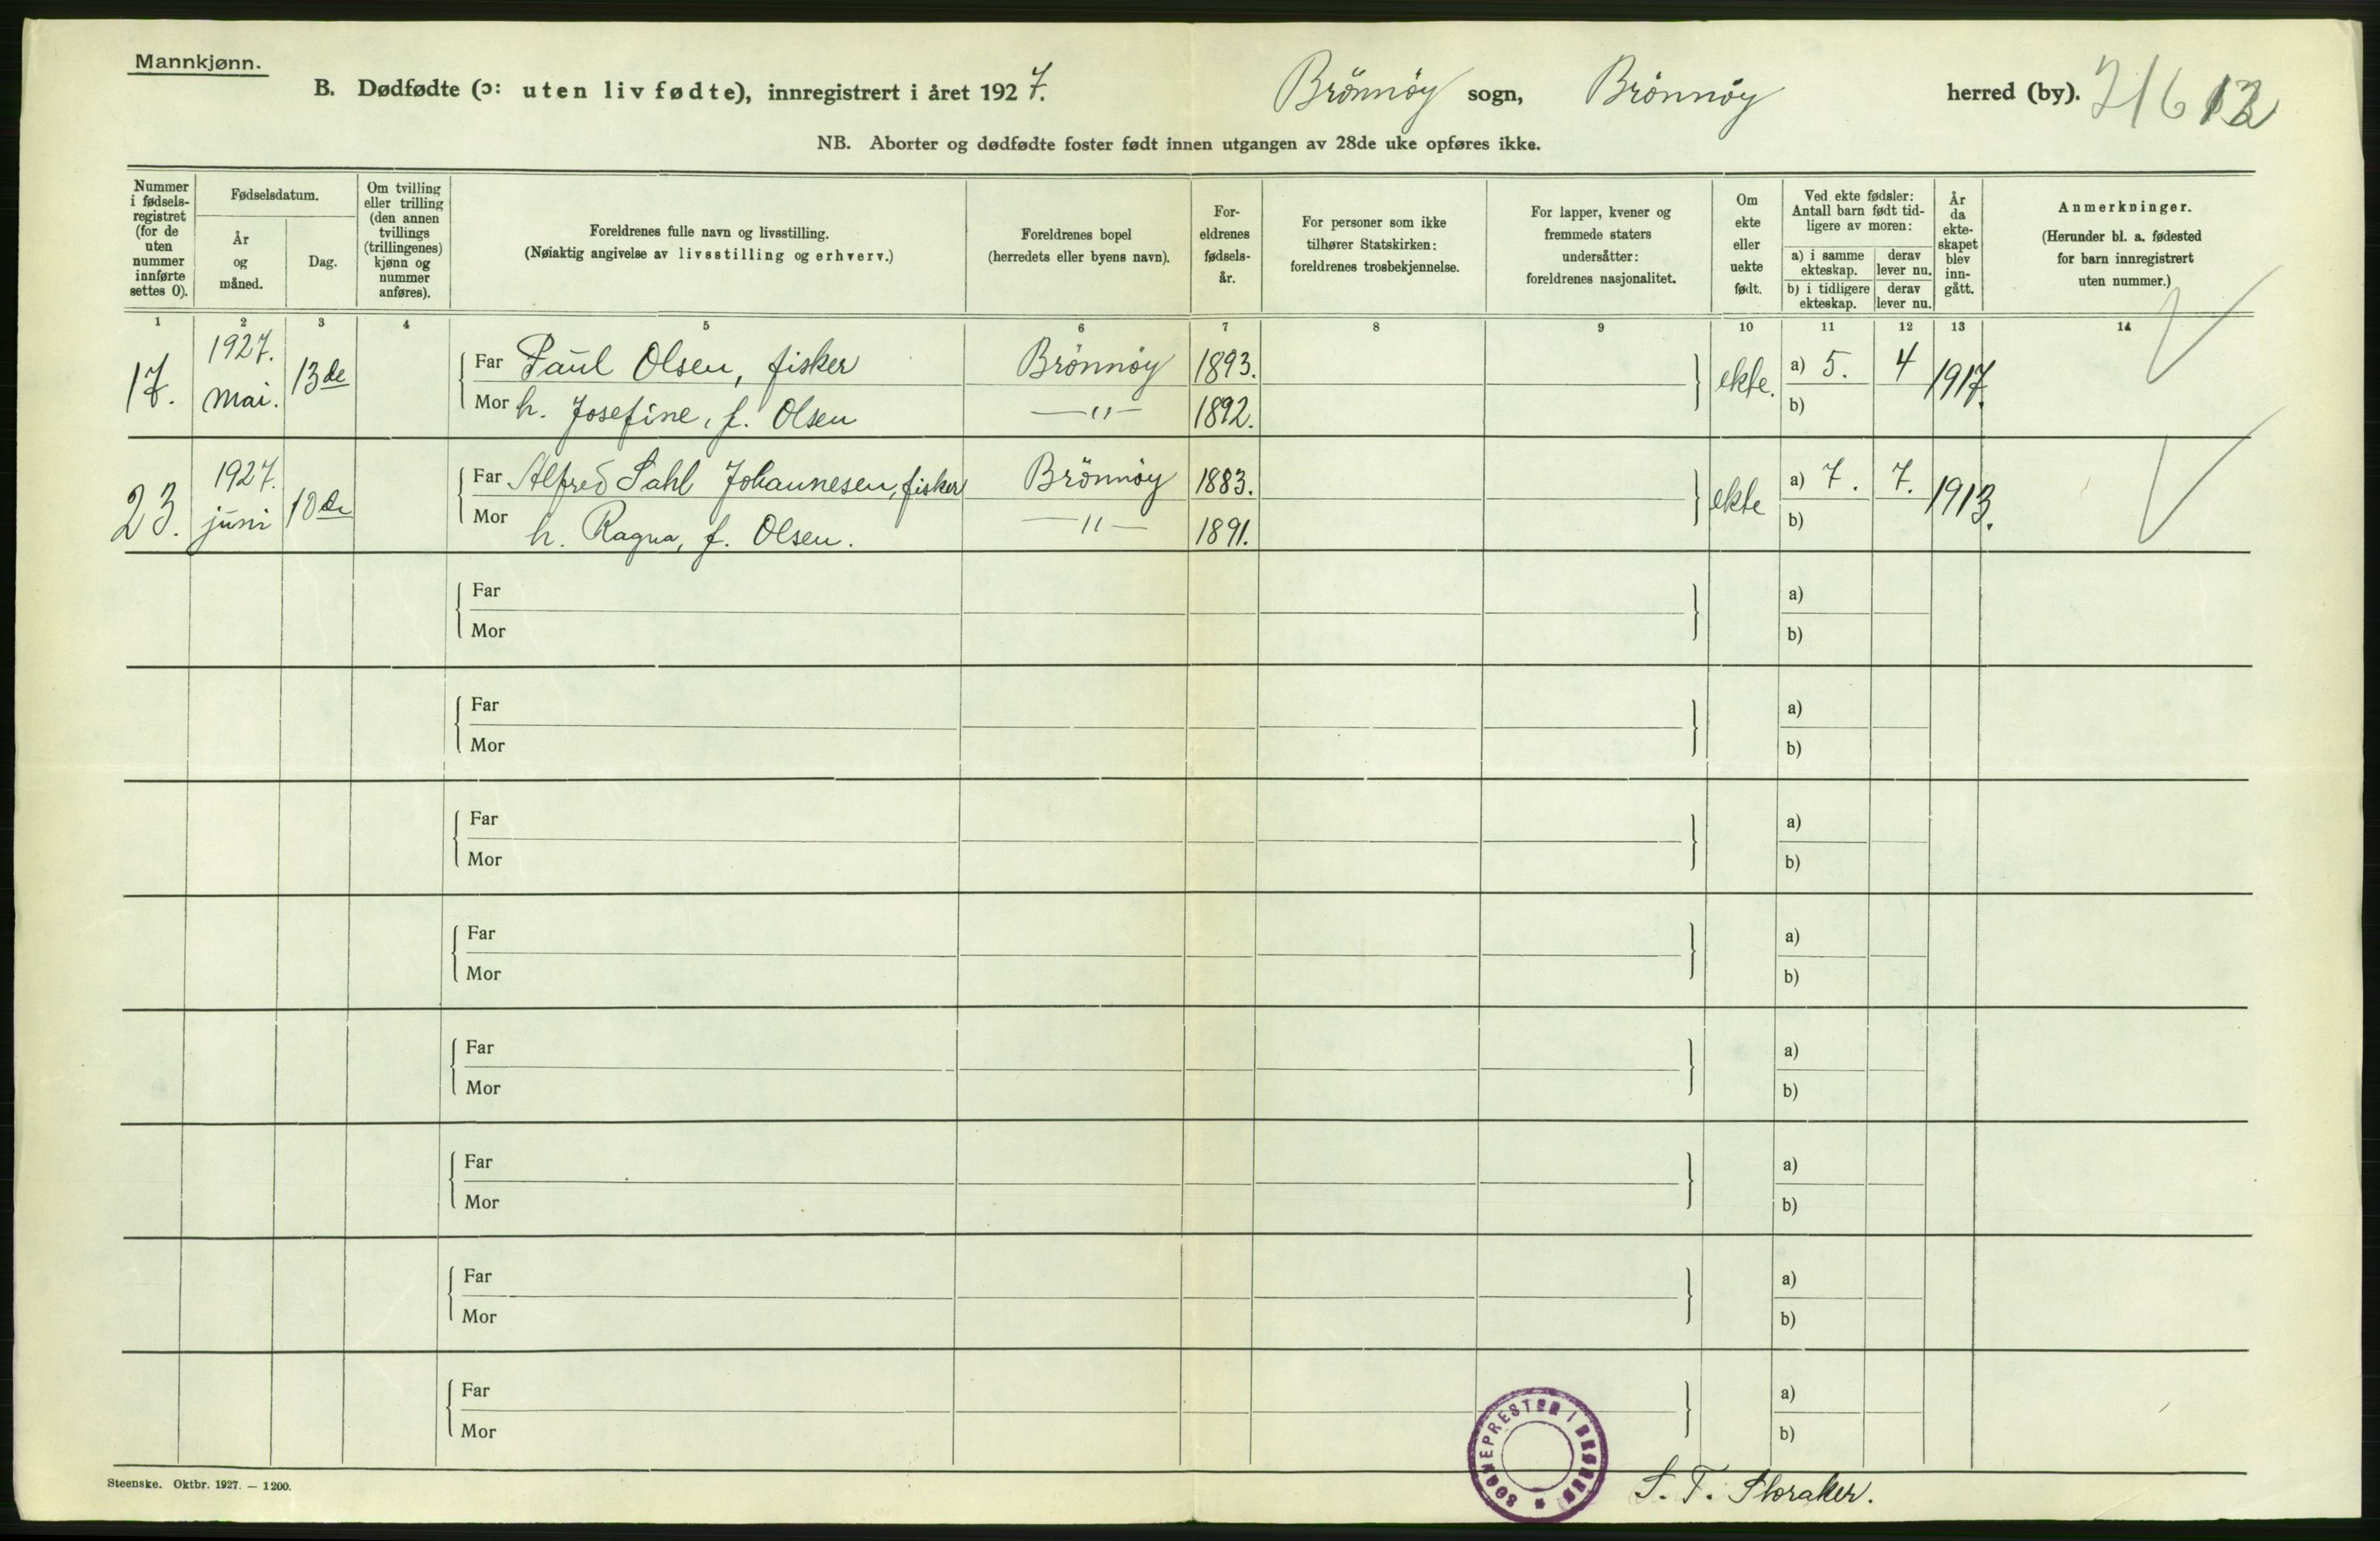 Mannkjønn.
B. Dødfødte (ɔ: uten liv fødte), innregistrert i året 1927. Brönnöy sogn, Brönnöy herred (by).
NB. Aborter og dødfødte foster født innen utgangen av 28de uke opføres ikke.
Nummer i fødsels-registret (for de uten nummer innførte settes 0).
Fødselsdatum.
År og måned.
Dag.
Om tvilling eller trilling (den annen tvillings (trillingenes) kjønn og nummer anføres).
Foreldrenes fulle navn og livsstilling.
(Nøiaktig angivelse av livsstilling og erhverv.)
Foreldrenes bopel
(herredets eller byens navn).
For-eldrenes fødsels-år.
For personer som ikke tilhører Statskirken: foreldrenes trosbekjennelse.
For lapper, kvener og fremmede staters undersåtter: foreldrenes nasjonalitet.
Om ekte eller uekte født.
Ved ekte fødsler: Antall barn født tid-ligere av moren:
a) i samme ekteskap.
derav lever nu.
b) i tidligere ekteskap.
derav lever nu.
År da ekte-skapet blev inn-gått.
Anmerkninger.
(Herunder bl. a. fødested for barn innregistrert uten nummer.)
1 2 3 4 5 6 7 8 9 10 11 12 13 14
17. 1927. mai. 13de
Far Paul Olsen, fisker Brönnöy 1893. ekte. a) 5. 4 1917.
Mor h. Josefine, f. Olsen —"— 1892. b)
23. 1927. juni 10de
Far Alfred Dahl Johannesen, fisker Brönnöy 1883. ekte a) 7. 7. 1913.
Mor h. Ragna, f. Olsen. —"— 1891. b)
Far a)
Mor b)
Far a)
Mor b)
Far a)
Mor b)
Far a)
Mor b)
Far a)
Mor b)
Far a)
Mor b)
Far a)
Mor b)
Far a)
Mor b)
Steenske. Oktbr. 1927. — 1200.
SOGNEPRESTEN I BRØNNØY
S. T. Storaker.